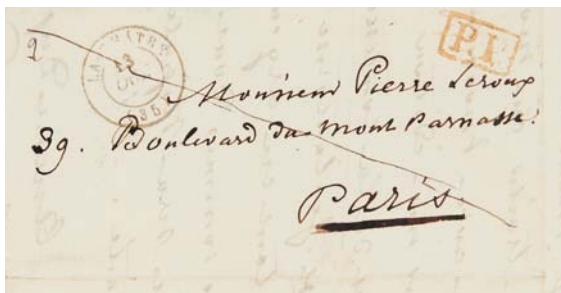 2
LA CHÂTRE
13
(35)
P.P.
Monsieur Pierre Leroux
39. Boulevard du mont Parnasse.
Paris